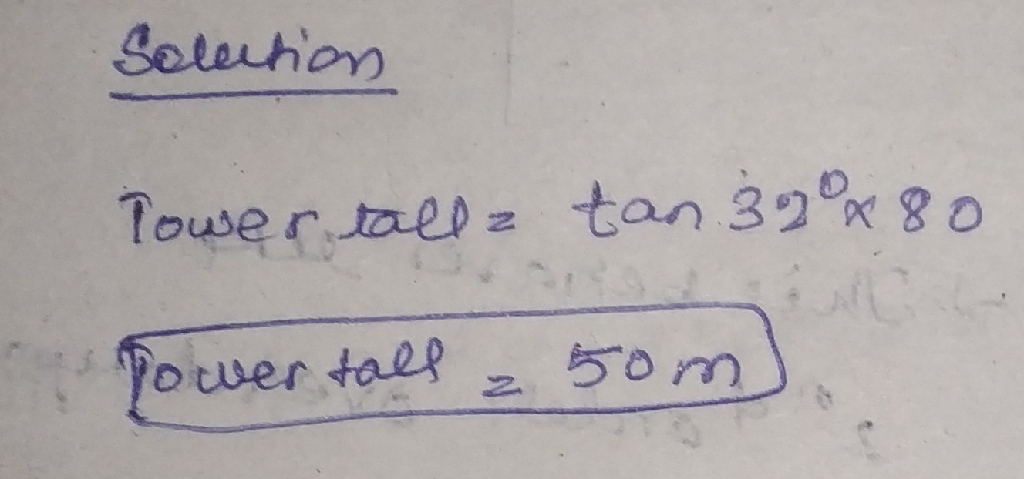 Solution
Tower tall = tan 32° x 80
Tower tall = 50 m